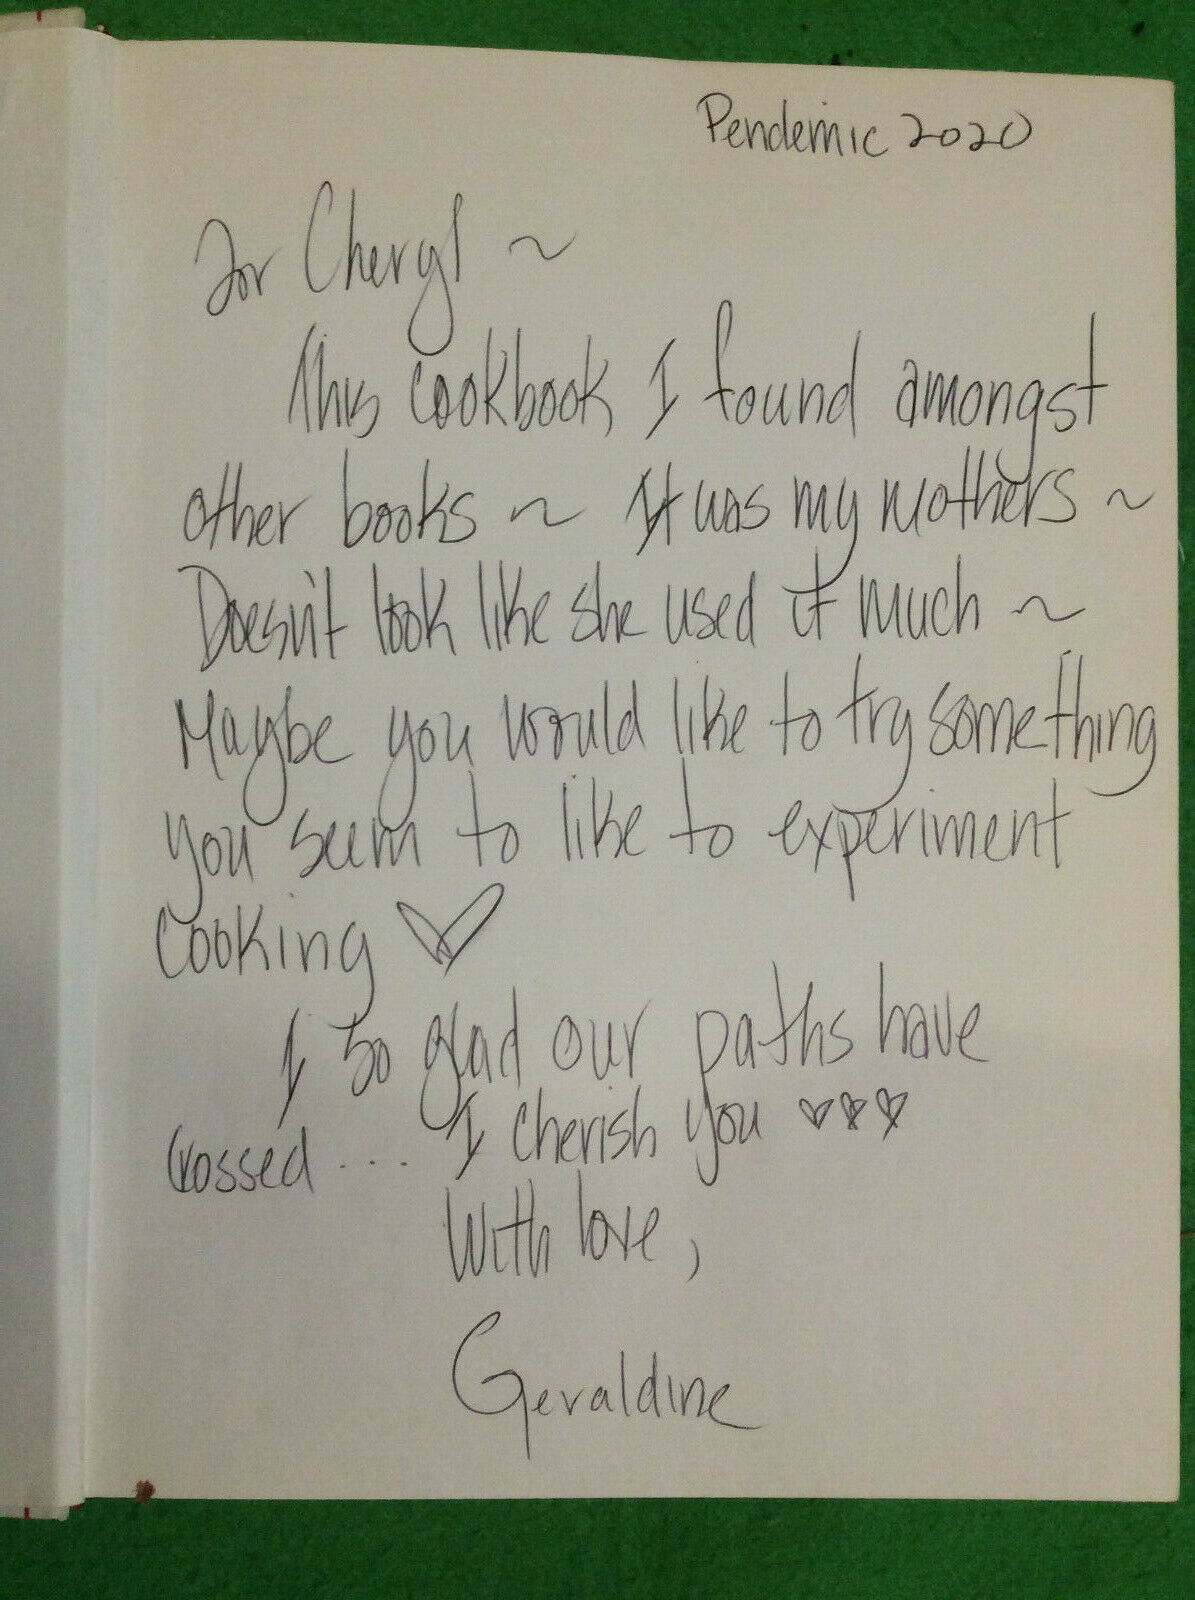 Pendemic 2020
For Cheryl ~
This cookbook I found amongst
other books ~ It was my mothers ~
Doesn't look like she used it much ~
Maybe you would like to try something
you seem to like to experiment
cooking ♡
I so glad our paths have
crossed .... I cherish you ♡♡♡
With love,
Geraldine